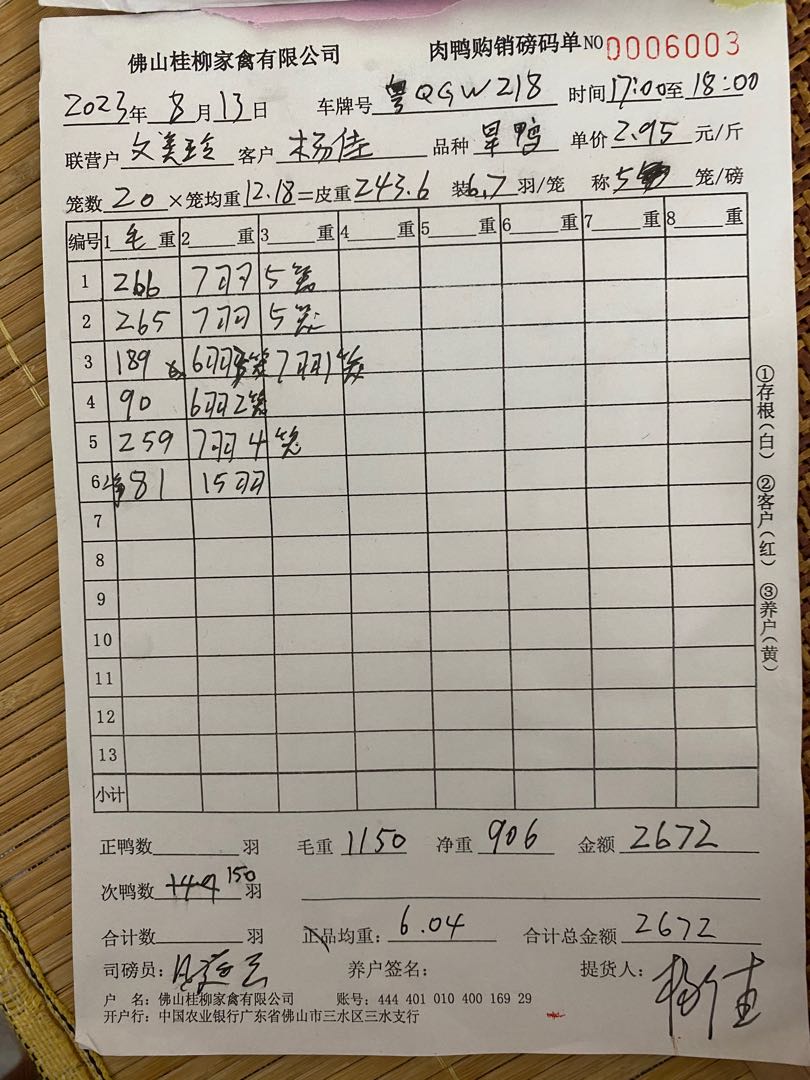 佛山桂柳家禽有限公司 肉鸭购销磅码单 NO 0006003
2023年 8月13日 车牌号 粤QGW218 时间17:00至18:00
联营户 文美玲 客户 杨佳 品种 旱鸭 单价 2.95 元/斤
笼数 20 ×笼均重 12.18 =皮重 243.6 装6.7羽/笼 称 5 笼/磅
编号 1 毛 重 2 重 3 重 4 重 5 重 6 重 7 重 8 重
1 266 7羽 5笼
2 265 7羽 5笼
3 189 6羽3笼 7羽1笼
4 90 6羽2笼
5 259 7羽4笼
6 净81 15羽
7
8
9
10
11
12
13
小计
①存根(白) ②客户(红) ③养户(黄)
正鸭数 羽 毛重 1150 净重 906 金额 2672
次鸭数 149 150 羽
合计数 羽 正品均重: 6.04 合计总金额 2672
司磅员: 养户签名: 提货人: 杨佳
户 名: 佛山桂柳家禽有限公司 账号: 444 401 010 400 169 29
开户行: 中国农业银行广东省佛山市三水区三水支行